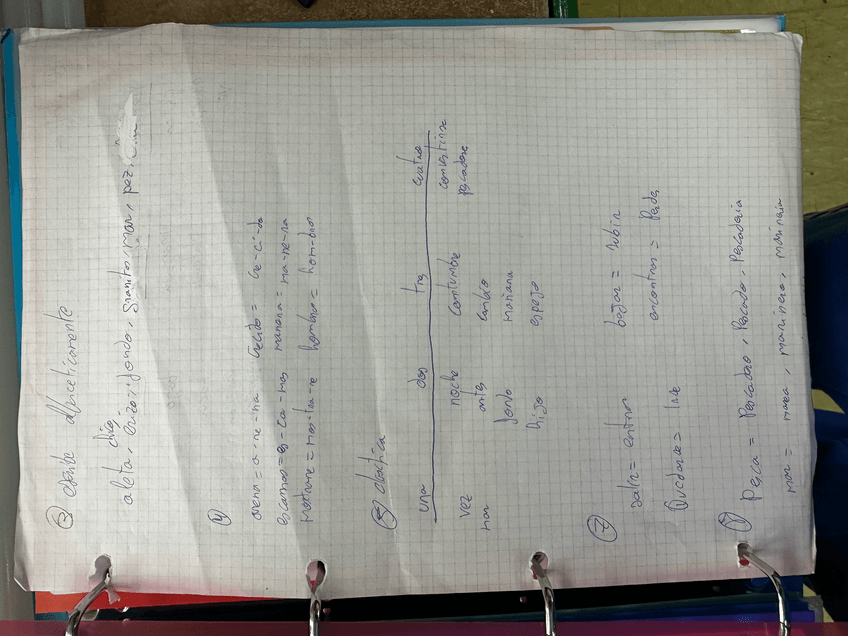 ③ escribe alfabeticamente
chico
aleta, erizo, fondo, granito, mar, pez.
④
arena = a-re-na crecido = cre-ci-do
escamas = es-ca-mas manana = ma-na-na
mostrare = mos-tra-re hombros = hom-bros
⑤ clasifica
una dos tres cuatro
vez noche costumbre convertirse
mar antes cambio pescadores
fondo mañana
hijo espejo
⑦
salir = entrar bajar = subir
Quedarse = irse encontrar = Perder
⑧ Pesca = Pescadero, Pescado, Pescaderia
mar = marea, marinero, marineria